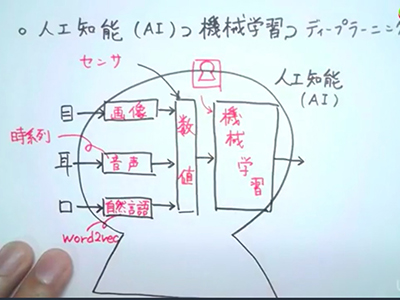 ○ 人工知能 (AI) ⊃ 機械学習 ⊃ ディープラーニング
センサ
人工知能
(AI)
目
画像
時系列
耳
音声
口
自然言語
word2vec
数値
機械学習